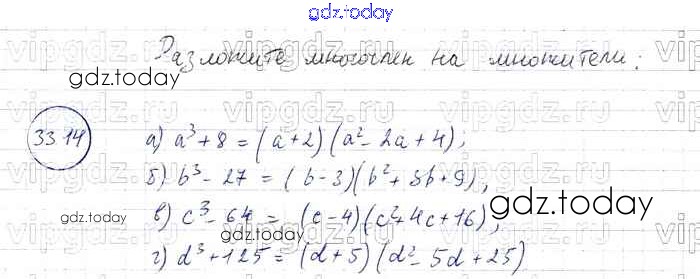 gdz.today
Разложите многочлен на множители:
gdz.today
33.14
а) a³ + 8 = (a + 2)(a² - 2a + 4);
б) b³ - 27 = (b - 3)(b² + 3b + 9),
gdz.today
в) c³ - 64 = (c - 4)(c² + 4c + 16),
gdz.today
г) d³ + 125 = (d + 5)(d² - 5d + 25)
vipgdz.ru